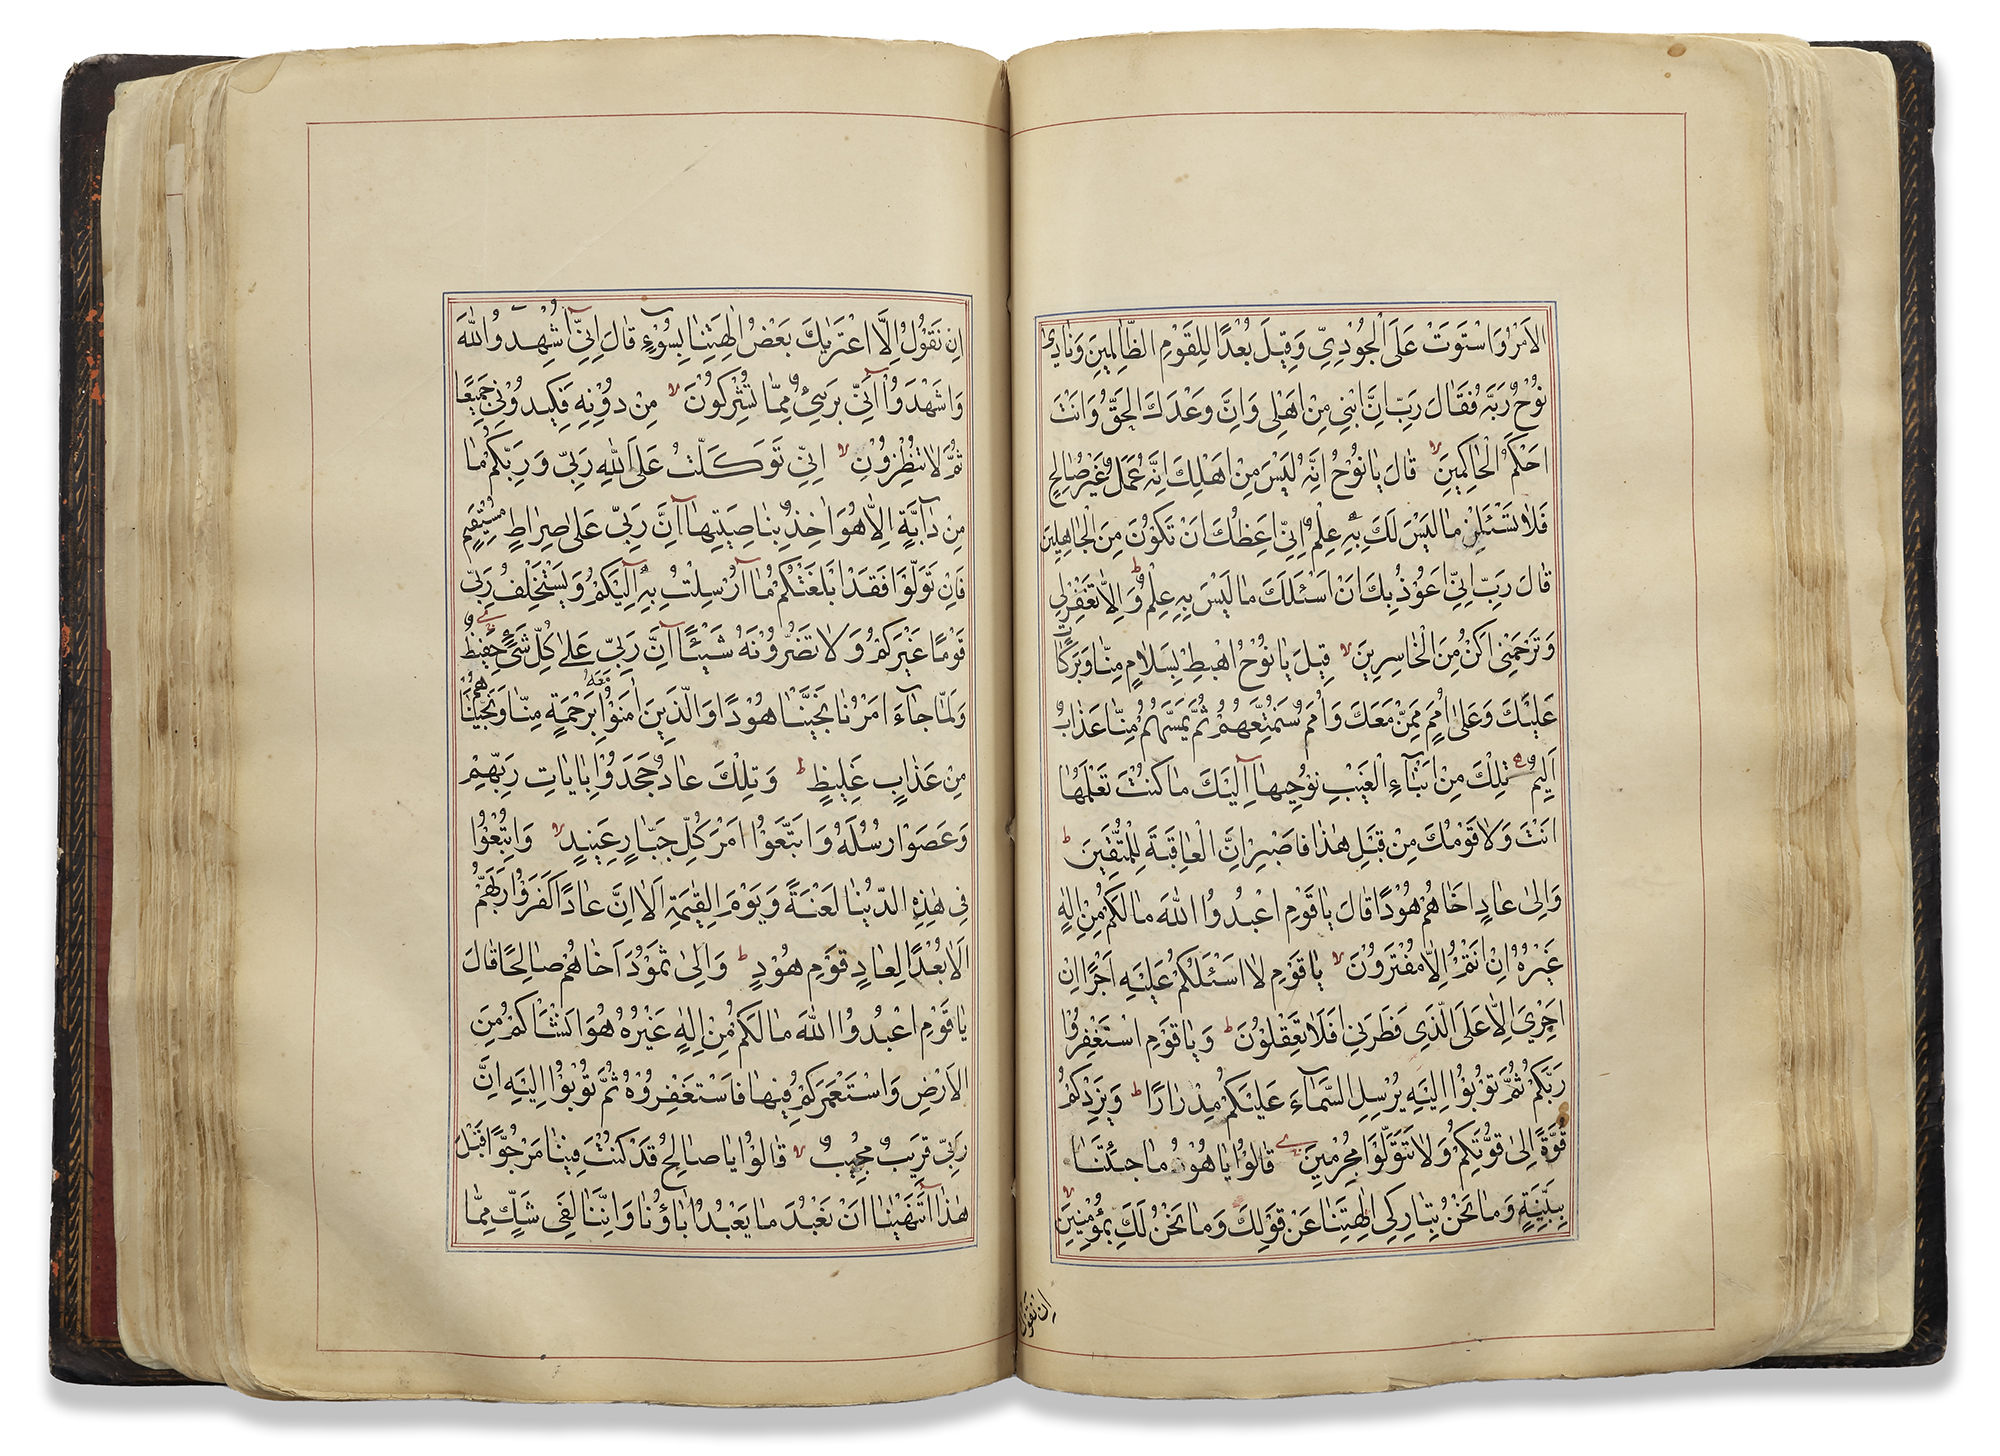 الاَمْرُ وَاسْتَوَتْ عَلَى الْجُوْدِيِّ وَقِيْلَ بُعْدًا لِلْقَوْمِ الظَّالِمِيْنَ وَنَادٰى
نُوْحٌ رَبَّهٗ فَقَالَ رَبِّ اِنَّ ابْنِي مِنْ اَهْلِي وَاِنَّ وَعْدَكَ الْحَقُّ وَاَنْتَ
اَحْكَمُ الْحَاكِمِيْنَ لا قَالَ يَا نُوْحُ اِنَّهٗ لَيْسَ مِنْ اَهْلِكَ اِنَّهٗ عَمَلٌ غَيْرُ صَالِحٍ
فَلَا تَسْئَلْنِ مَا لَيْسَ لَكَ بِهٖ عِلْمٌ اِنِّي اَعِظُكَ اَنْ تَكُوْنَ مِنَ الْجَاهِلِيْنَ
قَالَ رَبِّ اِنِّي اَعُوْذُ بِكَ اَنْ اَسْئَلَكَ مَا لَيْسَ بِهٖ عِلْمٌ ط وَاِلَّا تَغْفِرْلِي
وَتَرْحَمْنِي اَكُنْ مِنَ الْخَاسِرِيْنَ لا قِيْلَ يَا نُوْحُ اهْبِطْ بِسَلَامٍ مِنَّا وَبَرَكَاتٍ
عَلَيْكَ وَعَلٰى اُمَمٍ مِمَّنْ مَعَكَ وَاُمَمٌ سَنُمَتِّعُهُمْ ثُمَّ يَمَسُّهُمْ مِنَّا عَذَابٌ
اَلِيْمٌ تِلْكَ مِنْ اَنْبَآءِ الْغَيْبِ نُوْحِيْهَا اِلَيْكَ مَا كُنْتَ تَعْلَمُهَا
اَنْتَ وَلَا قَوْمُكَ مِنْ قَبْلِ هٰذَا فَاصْبِرْ اِنَّ الْعَاقِبَةَ لِلْمُتَّقِيْنَ ط
وَاِلٰى عَادٍ اَخَاهُمْ هُوْدًا قَالَ يَا قَوْمِ اعْبُدُوا اللّٰهَ مَا لَكُمْ مِنْ اِلٰهٍ
غَيْرُهٗ اِنْ اَنْتُمْ اِلَّا مُفْتَرُوْنَ لا يَا قَوْمِ لَا اَسْئَلُكُمْ عَلَيْهِ اَجْرًا اِنْ
اَجْرِيَ اِلَّا عَلَى الَّذِي فَطَرَنِي اَفَلَا تَعْقِلُوْنَ ط وَيَا قَوْمِ اسْتَغْفِرُوْا
رَبَّكُمْ ثُمَّ تُوْبُوْا اِلَيْهِ يُرْسِلِ السَّمَآءَ عَلَيْكُمْ مِدْرَارًا ط وَيَزِدْكُمْ
قُوَّةً اِلٰى قُوَّتِكُمْ وَلَا تَتَوَلَّوْا مُجْرِمِيْنَ قَالُوْا يَا هُوْدُ مَا جِئْتَنَا
بِبَيِّنَةٍ وَمَا نَحْنُ بِتَارِكِي اٰلِهَتِنَا عَنْ قَوْلِكَ وَمَا نَحْنُ لَكَ بِمُؤْمِنِيْنَ لا
اِنْ نَقُوْلُ
اِنْ نَقُوْلُ اِلَّا اعْتَرٰيكَ بَعْضُ اٰلِهَتِنَا بِسُوْٓءٍ قَالَ اِنِّي اُشْهِدُ واللّٰهَ
وَاشْهَدُوْا اَنِّي بَرِيْٓءٌ مِمَّا تُشْرِكُوْنَ لا مِنْ دُوْنِهٖ فَكِيْدُوْنِي جَمِيْعًا
ثُمَّ لَا تُنْظِرُوْنِ لا اِنِّي تَوَكَّلْتُ عَلَى اللّٰهِ رَبِّي وَرَبِّكُمْ مَا
مِنْ دَآبَّةٍ اِلَّا هُوَ اٰخِذٌ بِنَاصِيَتِهَا اِنَّ رَبِّي عَلٰى صِرَاطٍ مُسْتَقِيْمٍ
فَاِنْ تَوَلَّوْا فَقَدْ اَبْلَغْتُكُمْ مَا اُرْسِلْتُ بِهٖ اِلَيْكُمْ وَيَسْتَخْلِفُ رَبِّي
قَوْمًا غَيْرَكُمْ وَلَا تَضُرُّوْنَهٗ شَيْئًا اِنَّ رَبِّي عَلٰى كُلِّ شَيْءٍ حَفِيْظٌ
وَلَمَّا جَآءَ اَمْرُنَا نَجَّيْنَا هُوْدًا وَالَّذِيْنَ اٰمَنُوْا مَعَهٗ بِرَحْمَةٍ مِنَّا وَنَجَّيْنَاهُمْ
مِنْ عَذَابٍ غَلِيْظٍ ط وَتِلْكَ عَادٌ جَحَدُوْا بِاٰيَاتِ رَبِّهِمْ
وَعَصَوْا رُسُلَهٗ وَاتَّبَعُوْا اَمْرَ كُلِّ جَبَّارٍ عَنِيْدٍ لا وَاُتْبِعُوْا
فِي هٰذِهِ الدُّنْيَا لَعْنَةً وَيَوْمَ الْقِيٰمَةِ اَلَا اِنَّ عَادًا كَفَرُوْا رَبَّهُمْ
اَلَا بُعْدًا لِعَادٍ قَوْمِ هُوْدٍ ط وَاِلٰى ثَمُوْدَ اَخَاهُمْ صَالِحًا قَالَ
يَا قَوْمِ اعْبُدُوا اللّٰهَ مَا لَكُمْ مِنْ اِلٰهٍ غَيْرُهٗ هُوَ اَنْشَاَكُمْ مِنَ
الْاَرْضِ وَاسْتَعْمَرَكُمْ فِيْهَا فَاسْتَغْفِرُوْهُ ثُمَّ تُوْبُوْا اِلَيْهِ اِنَّ
رَبِّي قَرِيْبٌ مُجِيْبٌ لا قَالُوْا يَا صَالِحُ قَدْ كُنْتَ فِيْنَا مَرْجُوًّا قَبْلَ
هٰذَا اَتَنْهٰيْنَا اَنْ نَعْبُدَ مَا يَعْبُدُ اٰبَاؤُنَا وَاِنَّنَا لَفِي شَكٍّ مِمَّا